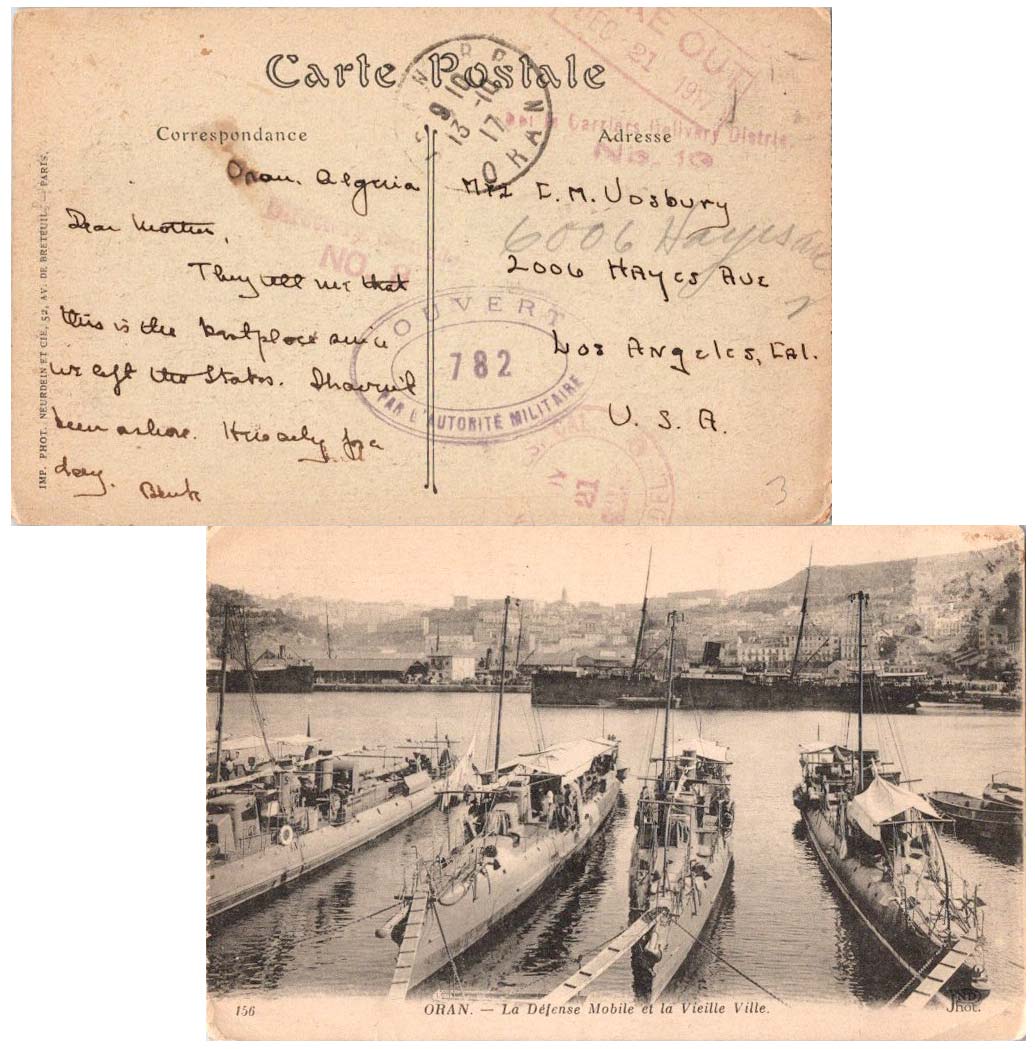 Carte Postale
Correspondance
Adresse
ORAN
9 10
13 -10
17
OUT
DEC 21 191
Carriers Delivery Distric.
No. 19
Oran. Algeria
Dear Mother,
They tell me that
this is the best place since
we left the States. I haven't
been ashore. Here only for a
day.
NO. 8
Mrs E. M. Vosbury
6006 Hayes
2006 HAYES AVE
Los Angeles, Cal.
U. S. A.
OUVERT
782
PAR L'AUTORITÉ MILITAIRE
CAL
21
DEL
3
IMP. PHOT. NEURDEIN ET CIE, 52, AV. DE BRETEUIL. — PARIS.
156
ORAN. — La Défense Mobile et la Vieille Ville.
ND
Phot.